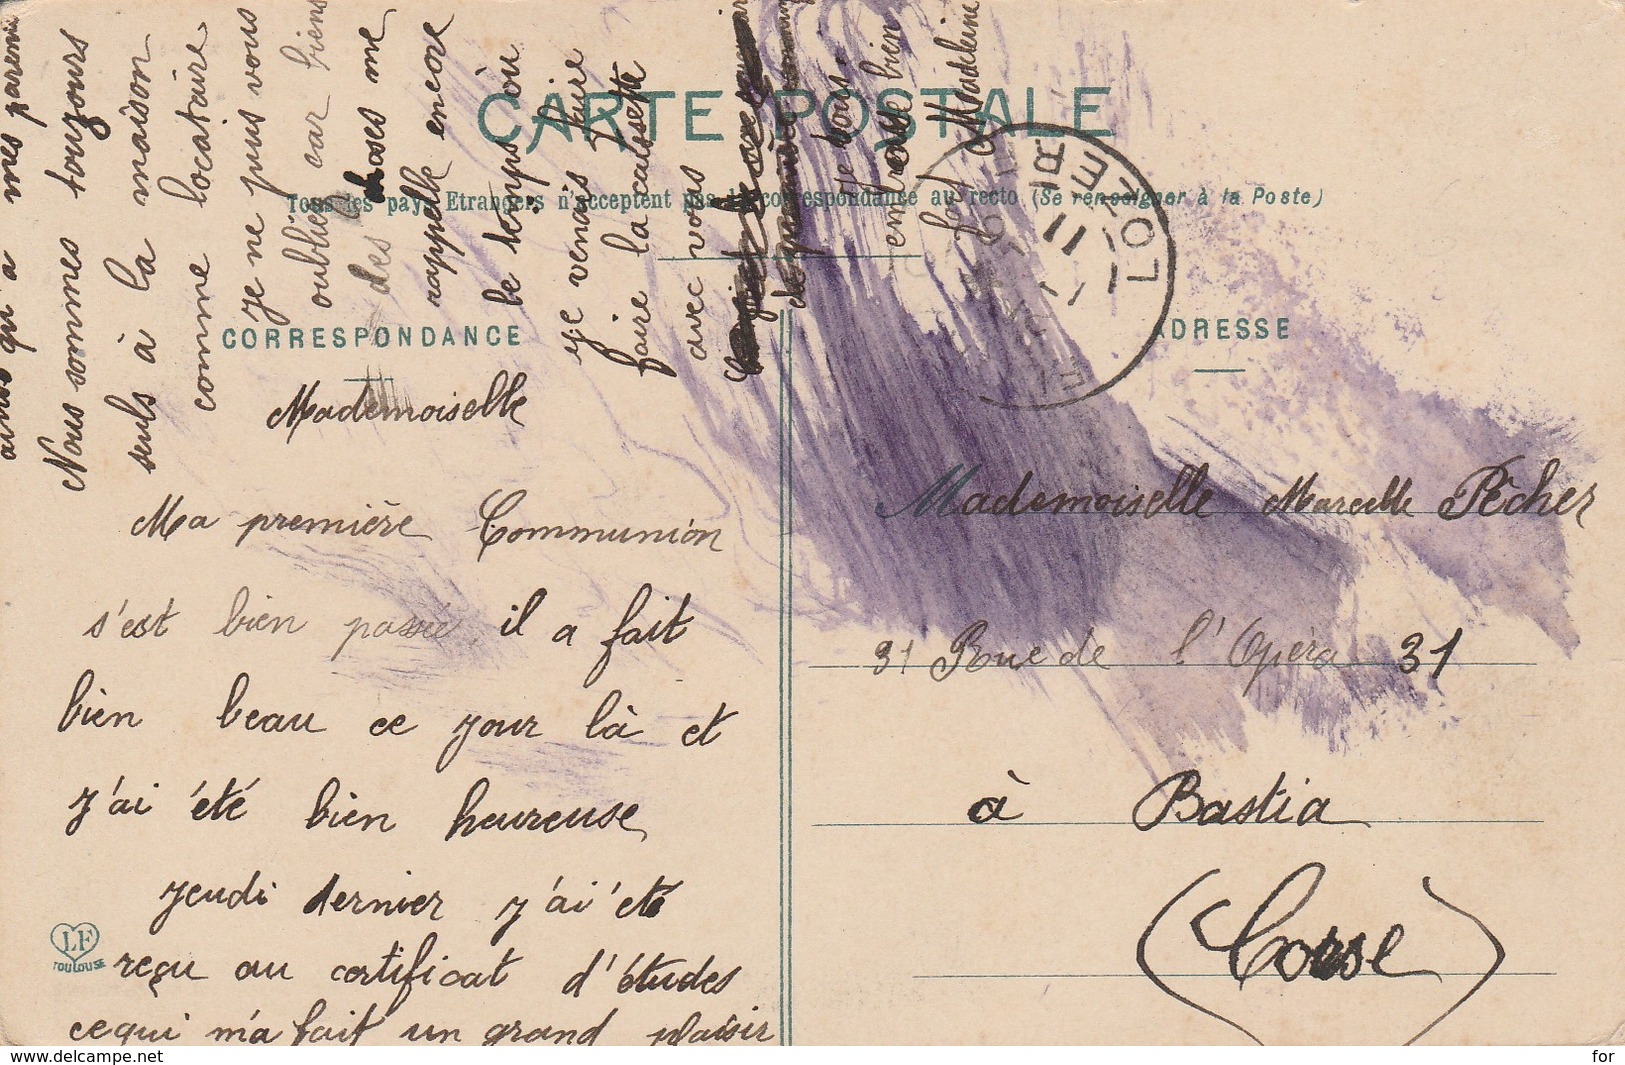 CARTE POSTALE
Tous les pays Etrangers n'acceptent pas la correspondance au recto (Se renseigner à la Poste)
CORRESPONDANCE
ADRESSE
Mademoiselle
Ma première Communion
s'est bien passée il a fait
bien beau ce jour là et
j'ai été bien heureuse
jeudi dernier j'ai été
reçu au certificat d'études
cequi m'a fait un grand plaisir
ainsi qu'a mes parents
Nous sommes toujours
seuls à la maison
comme locataire
je ne puis vous
oublier car bien
des choses me
rappelle encore
le temps où
je venais faire
faire la causette
avec vous
Je vous
embrasse bien
fort Madeleine
Mademoiselle Marcelle Pêcher
31 Rue de l'Opéra 31
à Bastia
(Corse)
LF
TOULOUSE
delcampe.net
for